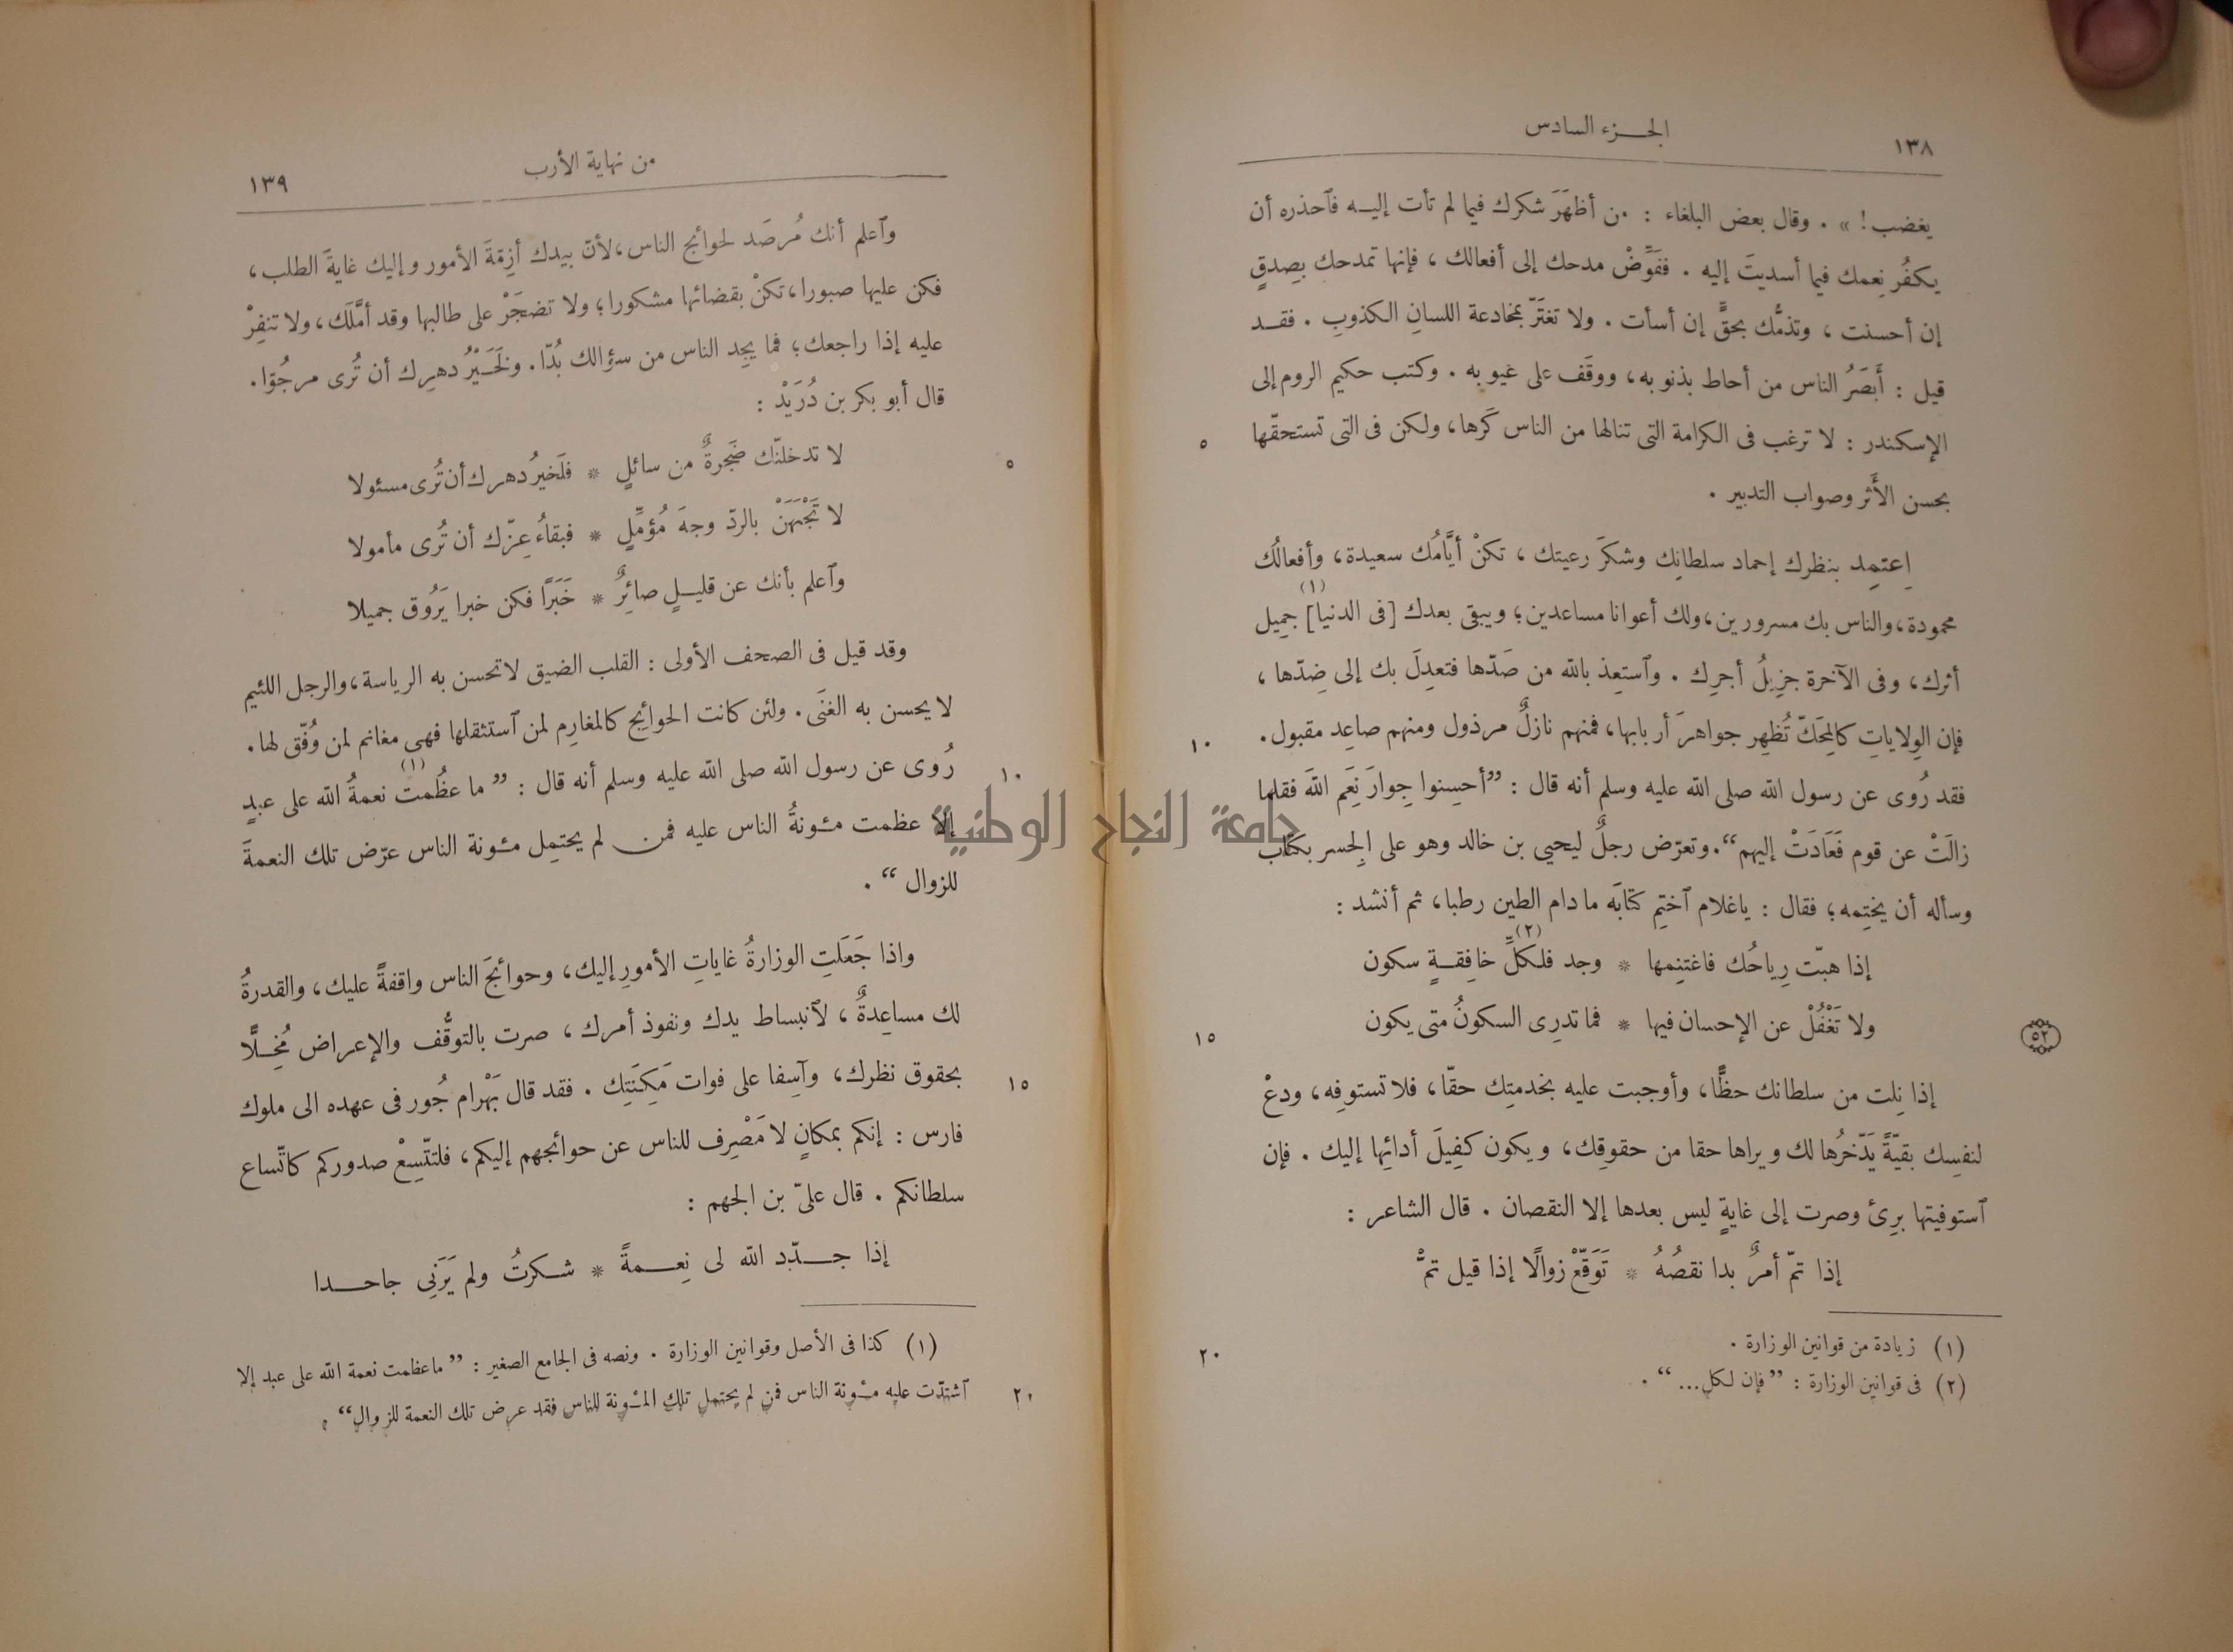 ١٣٨
الجـــزء السادس
يغضب! » . وقال بعض البلغاء : من أظهَرَ شكرك فيما لم تأت إليــه فٱحذره أن
يكفُر نِعمك فيما أسديتَ إليه . ففَوِّضْ مدحك إلى أفعالك ، فإنها تمدحك بِصِدقٍ
إن أحسنت ، وتذمُّك بحقٍّ إن أسأت . ولا تغتَرّ بمخادعة اللسانِ الكذوبِ . فقــد
قيل : أَبصَرُ الناس من أحاط بذنوبه ، ووقَف على عيوبه . وكتب حكيم الروم إلى
الإسكندر : لا ترغب فى الكرامة التى تنالها من الناس كَرها ، ولكن فى التى تستحقّها
٥
بحسن الأَثر وصواب التدبير .
اِعتمِد بنظرك إحماد سلطانِك وشكرَ رعيتك ، تكنْ أيَّامُك سعيدة ، وأفعالُك
محمودة ، والناس بك مسرورين ، ولك أعوانا مساعدين ؛ ويبقى بعدك [فى الدنيا](١) جمِيل
أثرك ، وفى الآخرة جزِيلُ أجرِك . وٱستعِذ بالله من صَدّها فتعدِلَ بك إلى ضِدّها ،
فإن الوِلاياتِ كالمِحَكّ تُظهِر جواهرَ أربابها ، فمنهم نازلٌ مرذول ومنهم صاعِد مقبول .
١٠
فقد رُوى عن رسول الله صلى الله عليه وسلم أنه قال : ”أحسِنوا جِوارَ نِعَم الله فقلما
زالَتْ عن قوم فَعَادَتْ إليهم“. وتعرّض رجلٌ ليحيى بن خالد وهو على الجِسر بكتاب
وسأله أن يختِمه ؛ فقال : ياغلام ٱختِم كتابَه ما دام الطين رطبا ، ثم أنشد :
إذا هبّت رِياحُك فاغتنِمها * وجد فلكلِّ(٢) خافِقــةٍ سكون
ولا تَغْفُلْ عن الإحسان فيها * فما تدرِى السكونُ متى يكون
١٥
٥٢
إذا نِلت من سلطانك حظًّا ، وأوجبت عليه بخدمتِك حقّا ، فلا تستوفِه ، ودعْ
لنفسِك بقيّةً يَدّخرُها لك ويراها حقا من حقوقِك ، ويكون كفِيلَ أدائِها إليك . فإن
ٱستوفيتها برِئ وصرت إلى غايةٍ ليس بعدها إلا النقصان . قال الشاعر :
إذا تمّ أمرٌ بدا نقصُهُ * تَوَقّعْ زوالًا إذا قيل تمّْ
(١) زيادة من قوانين الوزارة .
٢٠
(٢) فى قوانين الوزارة : ”فإن لكل...“ .
من نهاية الأرب
١٣٩
وٱعلم أنك مُرصَد لحوائج الناس ، لأنّ بيدك أزِمّةَ الأمور وإليك غايةَ الطلب ،
فكن عليها صبورا ، تكنْ بقضائها مشكورا ؛ ولا تضجَرْ على طالبها وقد أمَّلَك ، ولا تنفِرْ
عليه إذا راجعك ؛ فما يجِد الناس من سؤالك بُدّا . ولَخَــيْرُ دهرِك أن تُرى مرجُوّا .
قال أبو بكر بن دُرَيْد :
لا تدخلنّك ضَجرةٌ من سائلٍ * فلَخيرُ دهرك أن تُرى مسئولا
٥
لا تَجْبَهَنْ بالردّ وجهَ مُؤمِّلٍ * فبقاءُ عِزّك أن تُرى مأمولا
وٱعلم بأنك عن قليــلٍ صائِرٌ * خَبَرًا فكن خبرا يَرُوق جميلا
وقد قيل فى الصحف الأولى : القلب الضيق لا تحسن به الرياسة ، والرجل اللئيم
لا يحسن به الغنَى . ولئن كانت الحوائج كالمغارِم لمن ٱستثقلها فهى مغانم لمن وُفّق لها .
رُوى عن رسول الله صلى الله عليه وسلم أنه قال : ” ما عظُمت(١) نعمةُ الله على عبدٍ
١٠
إلا عظمت مئونةُ الناس عليه فمن لم يحتمِل مئونة الناس عرّض تلك النعمةَ
للزوال “ .
واذا جَعَلَتِ الوزارةُ غاياتِ الأمورِ إليك ، وحوائجَ الناس واقفةً عليك ، والقدرةُ
لك مساعِدةٌ ، لٱنبساط يدك ونفوذ أمرك ، صرت بالتوقُّف والإعراض مُخِــلًّا
بحقوق نظرك ، وآسِفا على فوات مَكِنَتِك . فقد قال بَهْرام جُور فى عهده الى ملوك
١٥
فارس : إنكم بمكانٍ لا مَصْرِف للناس عن حوائجهم إليكم ، فلتتّسِعْ صدوركم كاتّساع
سلطانكم . قال علىّ بن الجهم :
إذا جــدّد الله لى نِعــمةً * شكرتُ ولم يَرَنِى جاحــدا
(١) كذا فى الأصل وقوانين الوزارة . ونصه فى الجامع الصغير : ” ما عظمت نعمة الله على عبد إلا
ٱشتدّت عليه مئونة الناس فمن لم يحتمل تلك المئونة للناس فقد عرض تلك النعمة للزوال“ .
٢٠
جامعة النجاح الوطنية